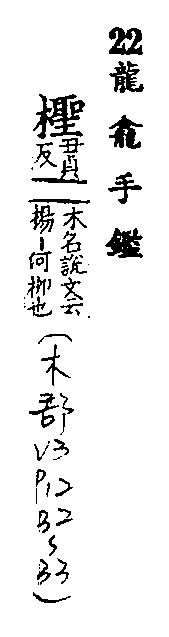 22龍龕手鑑
檉丑貞
反
木名說文云
楊｜何柳也
(木部V3P12B2~B3)